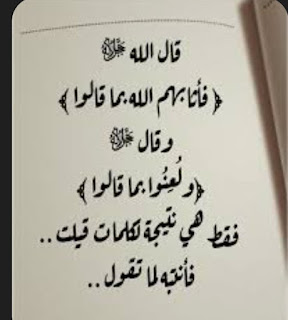 قال الله ﷻ
﴿ فأثابهم الله بما قالوا ﴾
وقال ﷻ
﴿ ولُعِنُوا بما قالوا ﴾
فقط هي نتيجة لكلمات قيلت ..
فأنتبه لما تقول ..